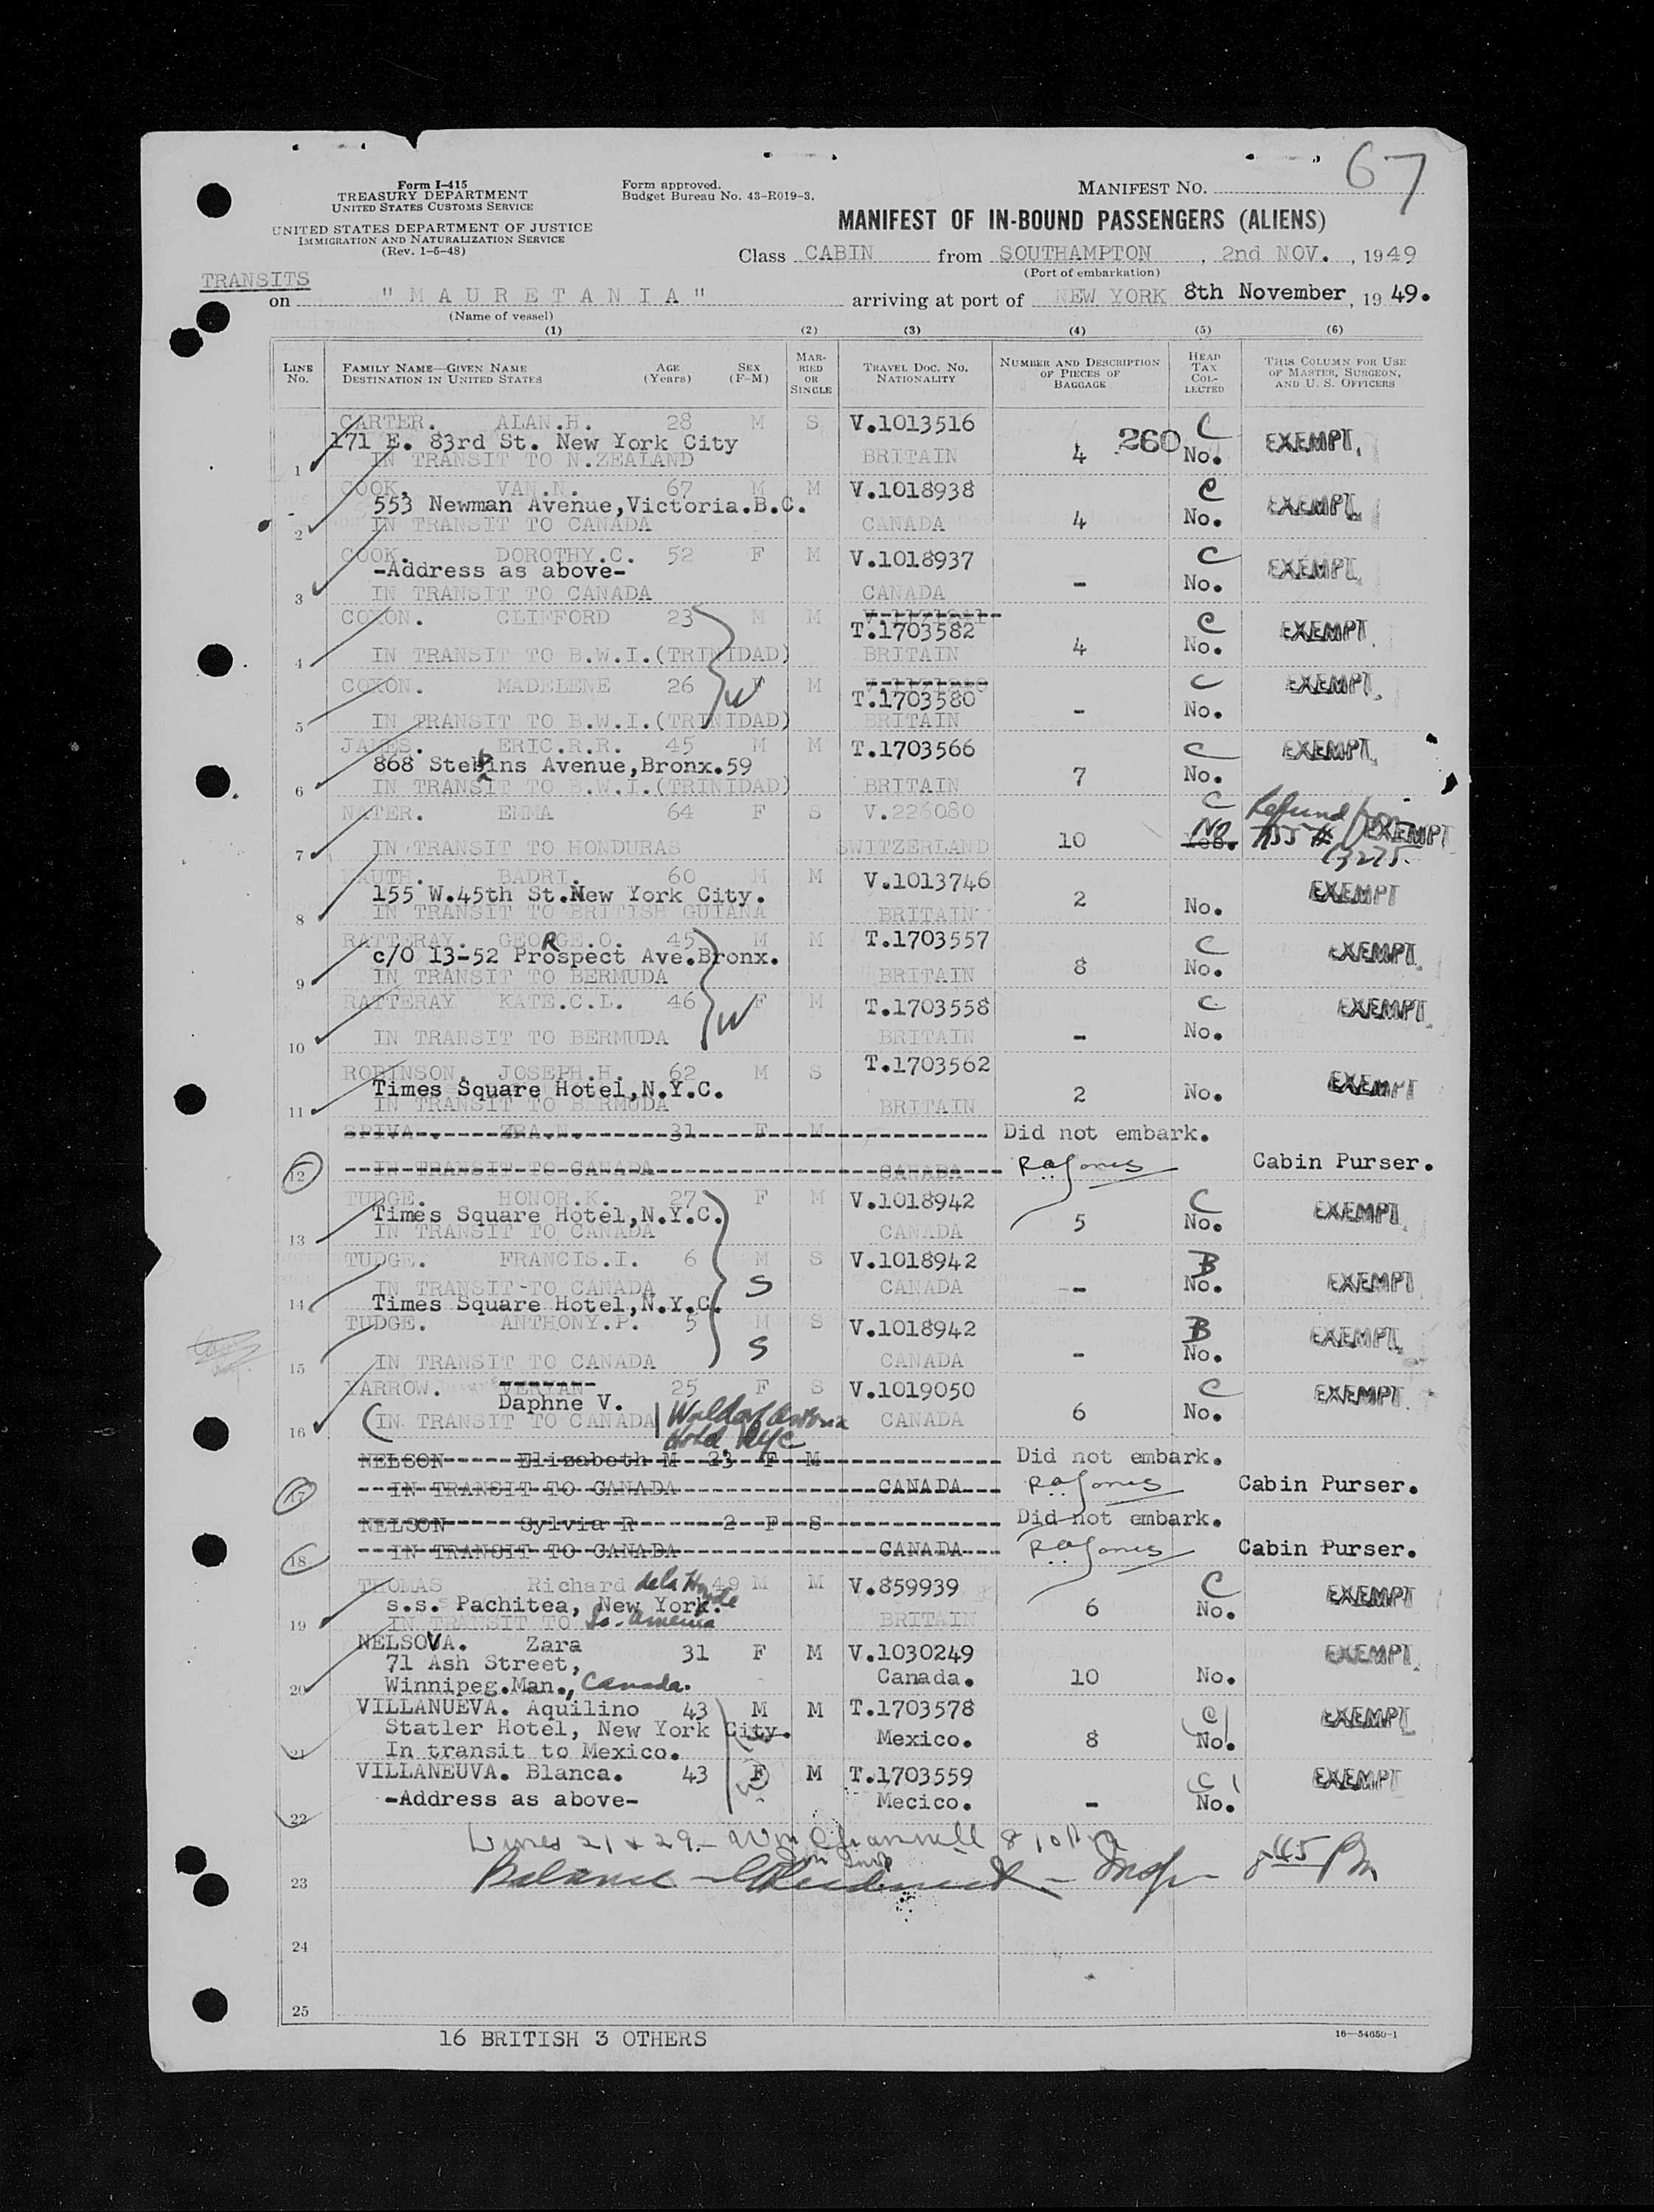 67
Form I-415
TREASURY DEPARTMENT
UNITED STATES CUSTOMS SERVICE
UNITED STATES DEPARTMENT OF JUSTICE
IMMIGRATION AND NATURALIZATION SERVICE
(Rev. 1-5-48)
Form approved.
Budget Bureau No. 43-R019-3.
MANIFEST NO.
MANIFEST OF IN-BOUND PASSENGERS (ALIENS)
Class CABIN from SOUTHAMPTON, 2nd NOV., 1949
(Port of embarkation)
TRANSITS
on "MAURETANIA" arriving at port of NEW YORK 8th November, 1949.
(Name of vessel)
(1) (2) (3) (4) (5) (6)
LINE No. FAMILY NAME—GIVEN NAME DESTINATION IN UNITED STATES AGE (Years) SEX (F-M) MARRIED OR SINGLE TRAVEL DOC. NO. NATIONALITY NUMBER AND DESCRIPTION OF PIECES OF BAGGAGE HEAD TAX COLLECTED THIS COLUMN FOR USE OF MASTER, SURGEON, AND U. S. OFFICERS
CARTER. ALAN.H. 28 M S V.1013516 C
171 E. 83rd St. New York City 260 EXEMPT
1 IN TRANSIT TO N.ZEALAND BRITAIN 4 No.
COOK. VAN.N. 67 M M V.1018938 C
553 Newman Avenue,Victoria.B.C. EXEMPT
2 IN TRANSIT TO CANADA CANADA 4 No.
COOK. DOROTHY.C. 52 F M V.1018937 C
-Address as above- EXEMPT
3 IN TRANSIT TO CANADA CANADA - No.
COXON. CLIFFORD 23 M M
T.1703582 C EXEMPT
4 IN TRANSIT TO B.W.I.(TRINIDAD) BRITAIN 4 No.
COXON. MADELENE 26 F M C EXEMPT
T.1703580
W
5 IN TRANSIT TO B.W.I.(TRINIDAD) BRITAIN - No.
JAMES. ERIC.R.R. 45 M M T.1703566 C EXEMPT
868 Stebbins Avenue,Bronx.59
6 IN TRANSIT TO B.W.I.(TRINIDAD) BRITAIN 7 No.
NATER. EMMA 64 F S V.226080 C Refund from
7 IN TRANSIT TO HONDURAS SWITZERLAND 10 Yes. No EXEMPT
BADRI. 60 M M V.1013746
155 W.45th St.New York City. 2 EXEMPT
8 IN TRANSIT TO BRITISH GUIANA BRITAIN No.
RATTERAY. GEORGE.O. 45 M M T.1703557 C
c/O 13-52 Prospect Ave.Bronx. EXEMPT
9 IN TRANSIT TO BERMUDA BRITAIN 8 No.
RATTERAY KATE.C.L. 46 F M T.1703558 C EXEMPT
W
10 IN TRANSIT TO BERMUDA BRITAIN - No.
ROBINSON. JOSEPH.H. 62 M S T.1703562
Times Square Hotel,N.Y.C. 2 No. EXEMPT
11 IN TRANSIT TO BERMUDA BRITAIN
31 F M Did not embark.
12 IN TRANSIT TO CANADA CANADA RA Jones Cabin Purser.
TUDGE. HONOR.K. 27 F M V.1018942 C
Times Square Hotel,N.Y.C. EXEMPT
13 IN TRANSIT TO CANADA CANADA 5 No.
TUDGE. FRANCIS.I. 6 M S V.1018942 B
IN TRANSIT TO CANADA S CANADA - No. EXEMPT
14 Times Square Hotel,N.Y.C.
TUDGE. ANTHONY.P. 5 M S V.1018942 B EXEMPT
S
15 IN TRANSIT TO CANADA CANADA - No.
YARROW. VERYAN 25 F S V.1019050 C EXEMPT
Daphne V.
16 (IN TRANSIT TO CANADA Waldorf Astoria CANADA 6 No.
Hotel NYC
NELSON Elizabeth M 23 F M Did not embark.
17 IN TRANSIT TO CANADA CANADA RA Jones Cabin Purser.
NELSON Sylvia R 2 F S Did not embark.
18 IN TRANSIT TO CANADA CANADA RA Jones Cabin Purser.
THOMAS Richard de la Hoyde 49 M M V.859939 C EXEMPT
s.s. Pachitea, New York.
19 IN TRANSIT TO So. America BRITAIN 6 No.
NELSOVA. Zara 31 F M V.1030249 EXEMPT
71 Ash Street,
20 Winnipeg.Man., Canada. Canada. 10 No.
VILLANUEVA. Aquilino 43 M M T.1703578 C EXEMPT
Statler Hotel, New York City. Mexico. 8 No.
21 In transit to Mexico.
VILLANEUVA. Blanca. 43 F M T.1703559 C EXEMPT
-Address as above- Mecico. - No.
22
Lines 21 & 22 - Wm Channell 8 10 PM
23 Balance - Insp - 8 45 PM
24
25
16 BRITISH 3 OTHERS
16—54650-1